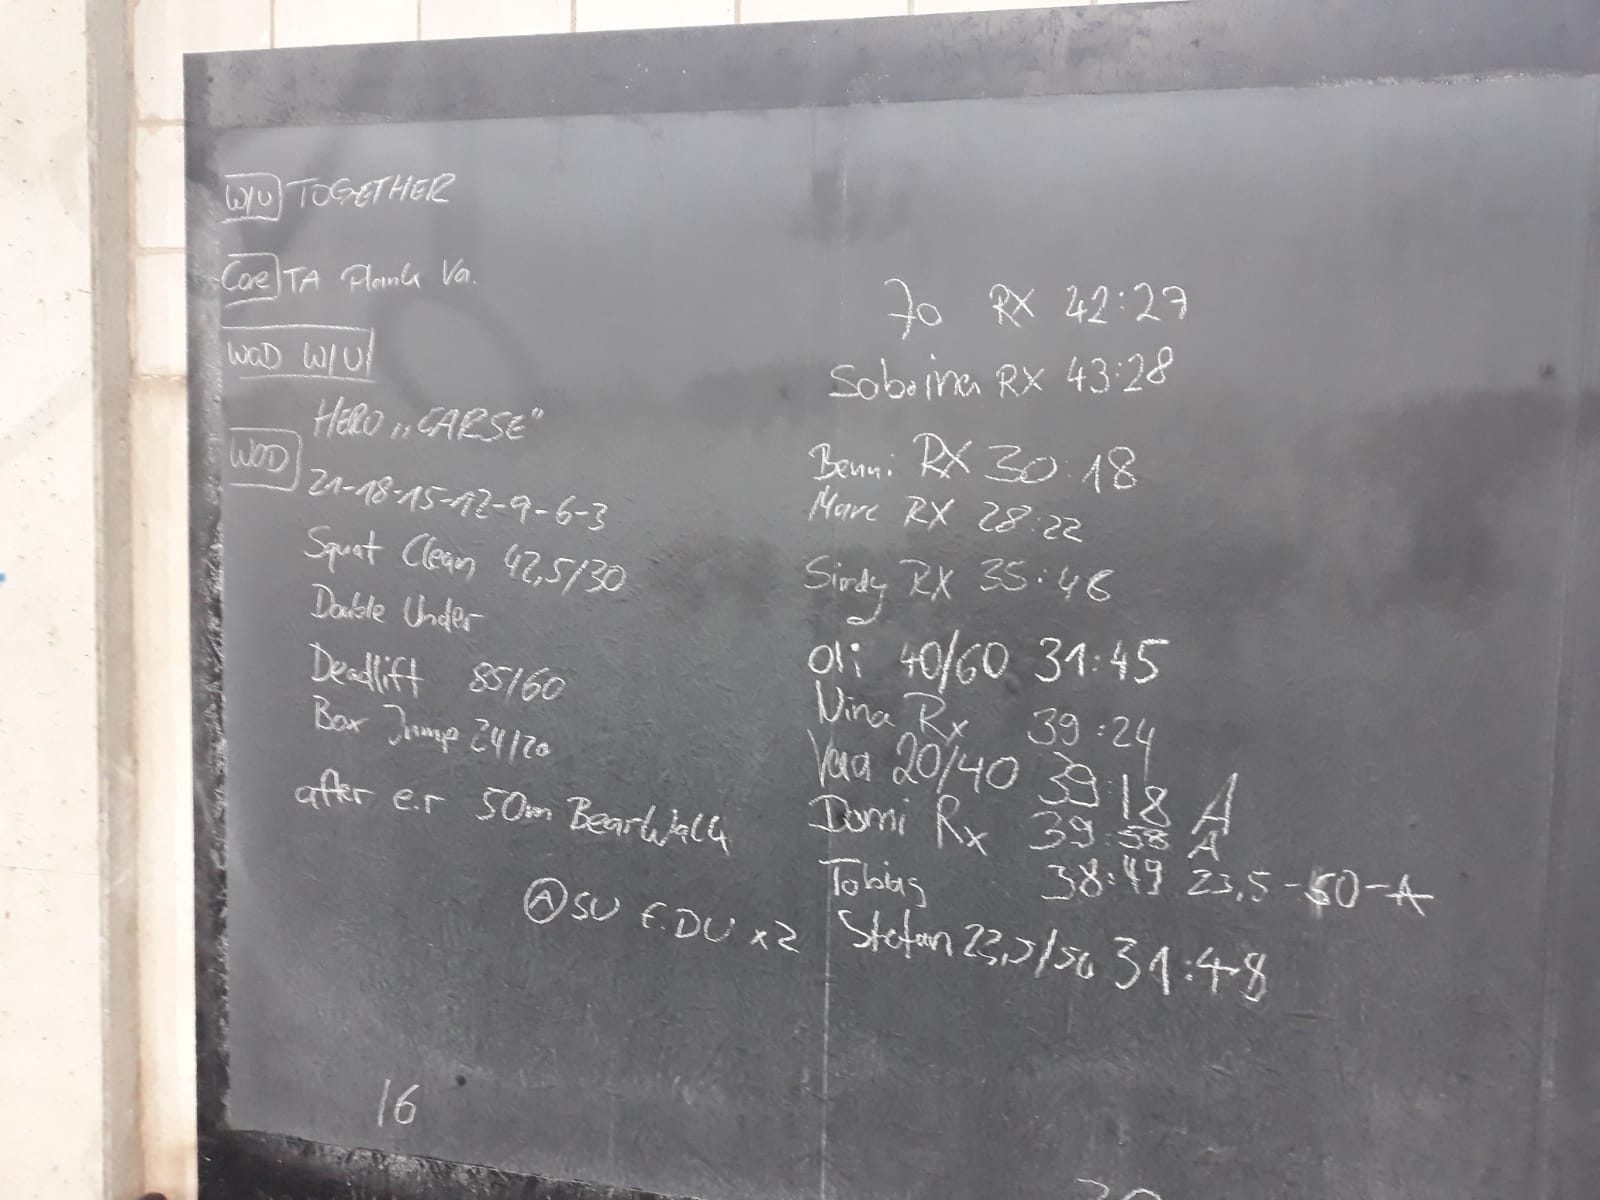 W/U TOGETHER
Core TA Plank Va.
WOD W/U
HERO „CARSE"
WOD
21-18-15-12-9-6-3
Squat Clean 42,5/30
Double Under
Deadlift 85/60
Box Jump 24/20
after e.r 50m BearWalk
A SU f. DU x2
16
Jo RX 42:27
RX 43:28
Benni RX 30:18
Marc RX 28:22
Sindy RX 35:46
Oli 40/60 31:45
Nina Rx 39:24
Vera 20/40 39:18 A
Domi Rx 39:58 A
Tobias 38:49 23,5-50-A
Stefan 23,5/50 31:48